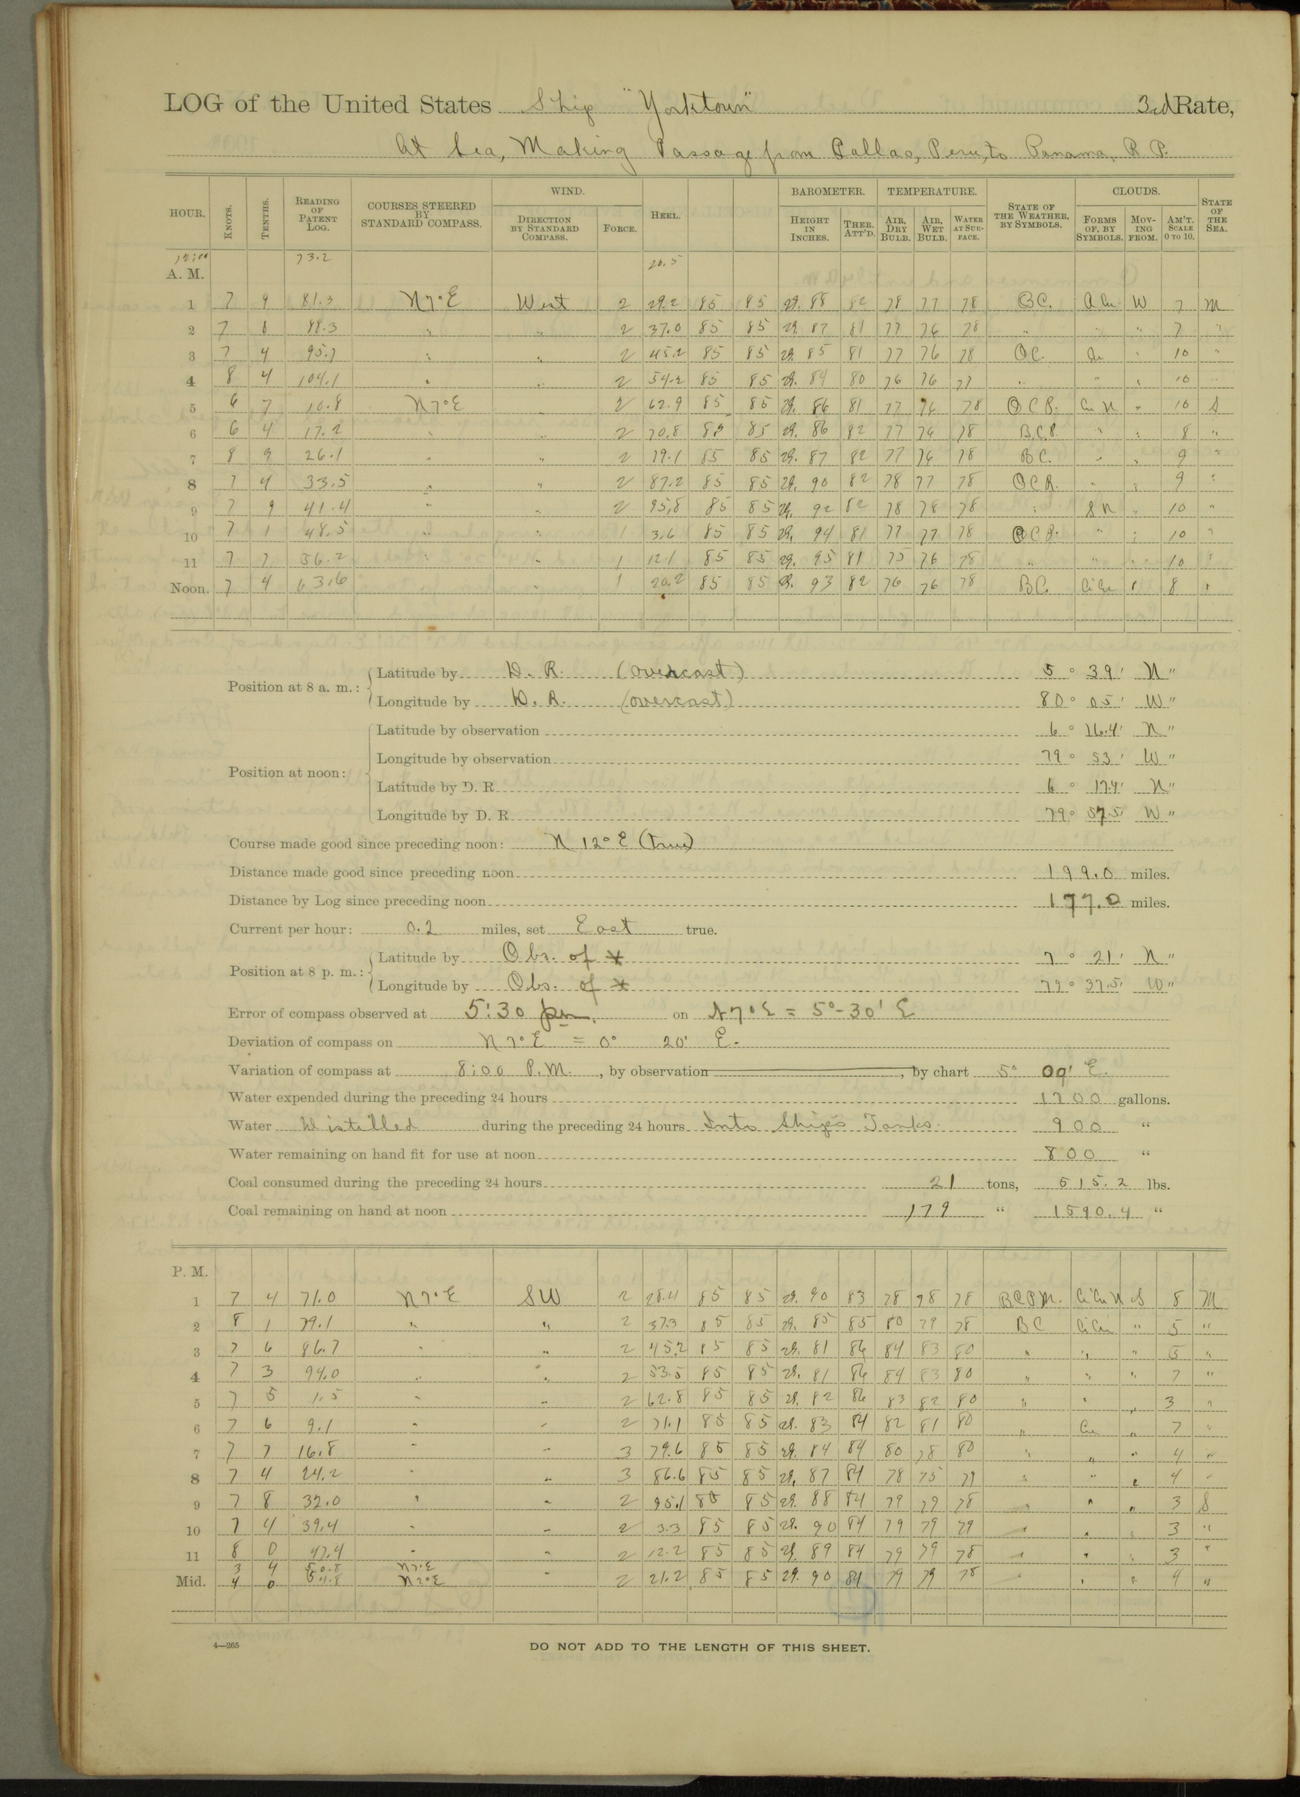 LOG of the United States Ship "Yorktown" 3rd Rate,
At Sea, Making Passage from Callao, Peru, to Panama, R. P.
HOUR. KNOTS. TENTHS. READING OF PATENT LOG. COURSES STEERED BY STANDARD COMPASS. WIND. DIRECTION BY STANDARD COMPASS. FORCE. HEEL. BAROMETER. HEIGHT IN INCHES. THER. ATT'D. TEMPERATURE. AIR, DRY BULB. AIR, WET BULB. WATER AT SURFACE. STATE OF THE WEATHER, BY SYMBOLS. CLOUDS. FORMS OF, BY SYMBOLS. MOVING FROM. AM'T. SCALE 0 TO 10. STATE OF THE SEA.
A. M. 73.2 20.5
1 7 9 81.3 N7°E West 2 29.2 85 85 29. 88 82 78 77 78 B.C. A Cu. W 7 M
2 7 88.3 " " 2 37.0 85 85 29. 87 81 77 76 78 " " " 7 "
3 7 4 95.7 " " 2 45.2 85 85 29. 85 81 77 76 78 O.C. " 10 "
4 8 4 104.1 " " 2 54.2 85 85 29. 84 80 76 76 77 " " " 10 "
5 6 7 10.8 N7°E 2 62.9 85 85 29. 86 81 77 76 78 O.C.R. Cu N " 10 S
6 6 4 17.2 " " 2 70.8 85 85 29. 86 82 77 76 78 B.C.R. " " 8 "
7 8 9 26.1 " " 2 79.1 85 85 29. 87 82 77 76 78 B.C. " " 9 "
8 7 4 33.5 " " 2 87.2 85 85 29. 90 82 78 77 78 O.C.R. " " 9 "
9 7 9 41.4 " " 2 95.8 85 85 29. 92 82 78 78 78 " S N " 10 "
10 7 1 48.5 " " 1 3.6 85 85 29. 94 81 77 77 78 O.C.R. " " 10 "
11 7 7 56.2 " " 1 12.1 85 85 29. 95 81 75 76 78 " " " 10 "
Noon. 7 4 63.6 " " 1 20.2 85 85 29. 93 82 76 76 78 B.C. Ci Cu " 8 "
Position at 8 a. m.: Latitude by D. R. (overcast) 5 ° 39 ' N "
Longitude by D. R. (overcast) 80 ° 05 ' W "
Position at noon: Latitude by observation 6 ° 16.4 ' N "
Longitude by observation 79 ° 53 ' W "
Latitude by D. R. 6 ° 17.4 ' N "
Longitude by D. R. 79 ° 57.5 ' W "
Course made good since preceding noon: N 12° E (true)
Distance made good since preceding noon 199.0 miles.
Distance by Log since preceding noon 177.0 miles.
Current per hour: 0.2 miles, set East true.
Position at 8 p. m.: Latitude by Obs. of * 7 ° 21 ' N "
Longitude by Obs. of * 79 ° 37.5 ' W "
Error of compass observed at 5:30 pm. on N7°E = 5°-30' E
Deviation of compass on N7°E = 0° 20' E.
Variation of compass at 8:00 P.M. , by observation , by chart 5° 09' E.
Water expended during the preceding 24 hours 1200 gallons.
Water Distilled during the preceding 24 hours Into Ship's Tanks. 900 "
Water remaining on hand fit for use at noon 800 "
Coal consumed during the preceding 24 hours 21 tons, 515.2 lbs.
Coal remaining on hand at noon 179 " 1590.4 "
P. M.
1 7 4 71.0 N7°E SW 2 28.4 85 85 29. 90 83 78 78 78 Ci Cu N S 8 M
2 8 1 79.1 " " 2 37.3 85 85 29. 85 85 80 79 78 BC Ci Cu " 5 "
3 7 6 86.7 " " 2 45.2 85 85 29. 81 86 84 83 80 " " " 5 "
4 7 3 94.0 " " 2 53.5 85 85 29. 81 86 84 83 80 " " " 7 "
5 7 5 1.5 " " 2 62.8 85 85 29. 82 86 83 82 80 " " " 3 "
6 7 6 9.1 " " 2 71.1 85 85 29. 83 84 82 81 80 " Cu " 7 "
7 7 7 16.8 " " 3 79.6 85 85 29. 84 84 80 78 80 " " 4 "
8 7 4 24.2 " " 3 86.6 85 85 29. 87 84 78 75 79 " " " 4 "
9 7 8 32.0 " " 2 95.1 85 85 29. 88 84 79 79 78 " " " 3 S
10 7 4 39.4 " " 2 3.3 85 85 29. 90 84 79 79 79 " " " 3 "
11 8 0 47.4 " " 2 12.2 85 85 29. 89 84 79 79 78 " " " 3 "
3 4 50.8 N7°E
Mid. 4 0 54.8 N2°E " 2 21.2 85 85 29. 90 84 79 79 78 " " " 4 "
4—265
DO NOT ADD TO THE LENGTH OF THIS SHEET.